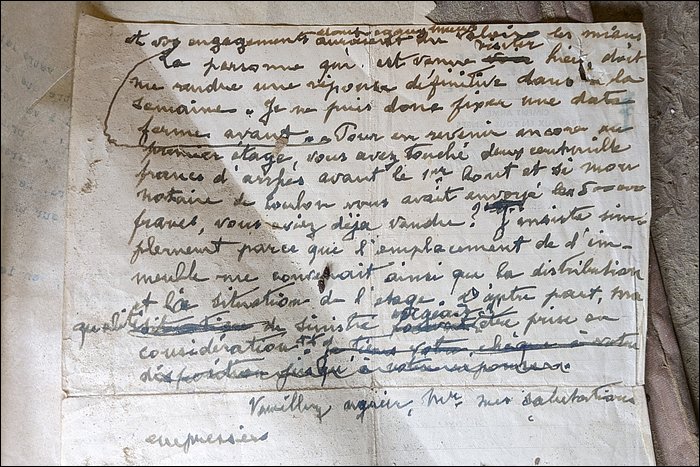 et vos engagements auraient du valoir les miens
La personne qui est venue hier doit
me rendre une réponse définitive dans la
semaine. Je ne puis donc fixer une date
ferme avant.. Pour en revenir encore au
premier étage, vous avez touché deux cent mille
francs d'arrhes avant le 1er Aout et si mon
notaire de Toulon vous avait envoyé les 500000
francs, vous aviez déjà vendu? J'insiste sim-
plement parce que l'emplacement de l'im-
meuble me convenait ainsi que la distribution
et la situation de l'étage. D'autre part, ma
qualité de sinistré être prise en
considération je tiens votre chèque à votre
disposition jusqu'à votre réponse.
Veuillez agréer, Mr mes salutations
empressées